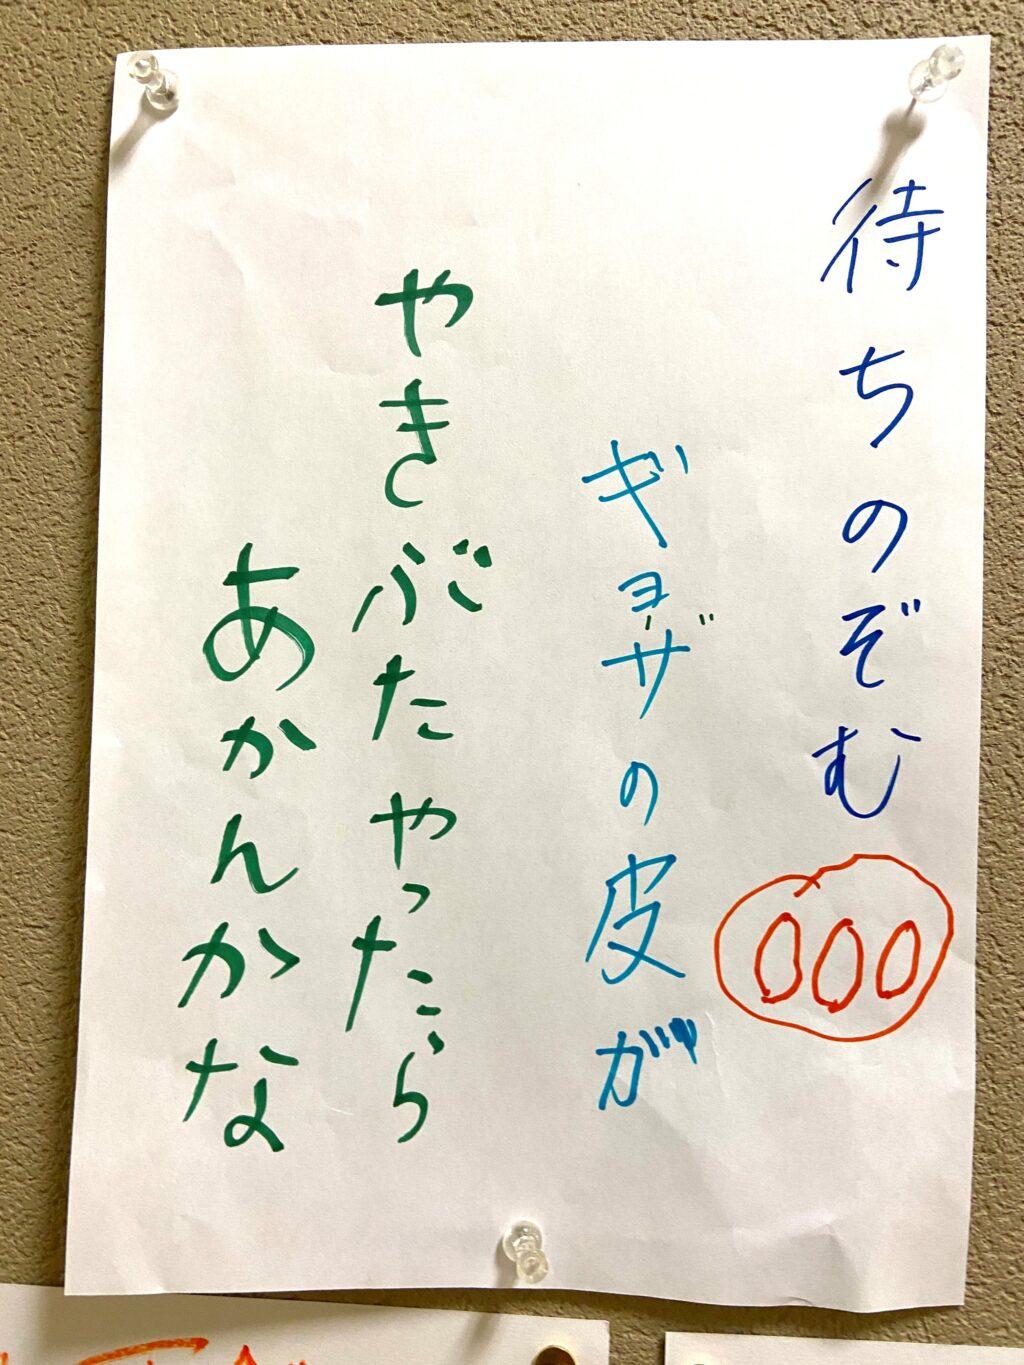 待ちのぞむ
000
ギョーザの皮が
やきぶたやったら
あかんかな